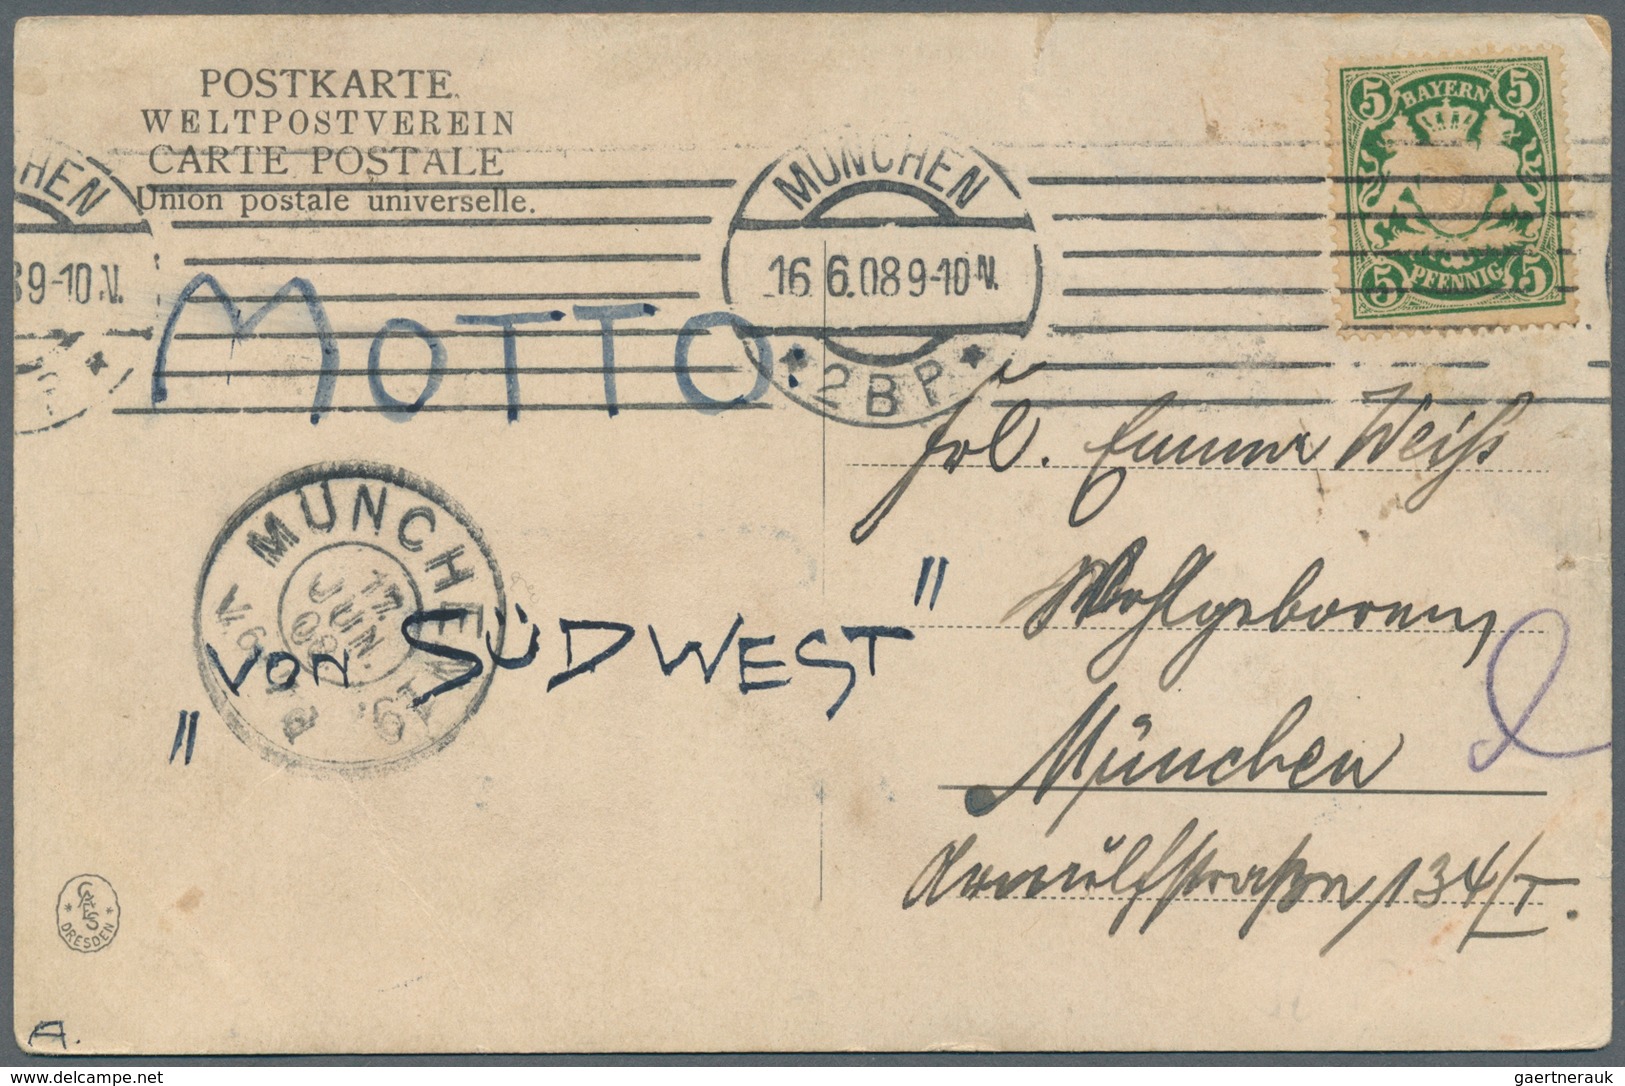 POSTKARTE.
WELTPOSTVEREIN
CARTE POSTALE
Union postale universelle.
BAYERN
5 5
5 5
PFENNIG
HEN
9-10 V.
MÜNCHEN
16 6.08 9-10 V.
* 2 B P *
MOTTO:
Frl. Emma Weiß
Wohlgeboren,
München
Arnulfstraße 134/I.
MÜNCHEN
17.
JUN.
08
V. 6
"VON SÜDWEST"
DRESDEN
A.
© www.delcampe.net
gaertnerauk